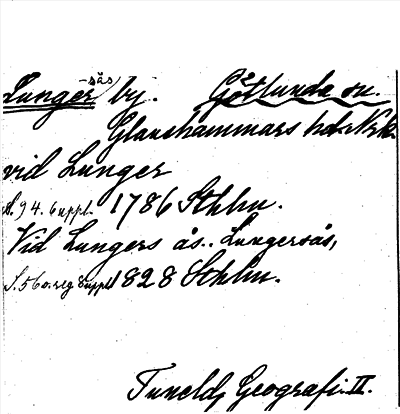 Lunger -sås by. Götlunda sn.
Glanshammars hd. Nrk.
vid Lunger
S. 94. 6 uppl. 1786 Sthlm.
Vid Lungers ås., Lungersås,
S. 56 o. reg 8 uppl 1828 Sthlm.
Tuneld, Geografi. II.